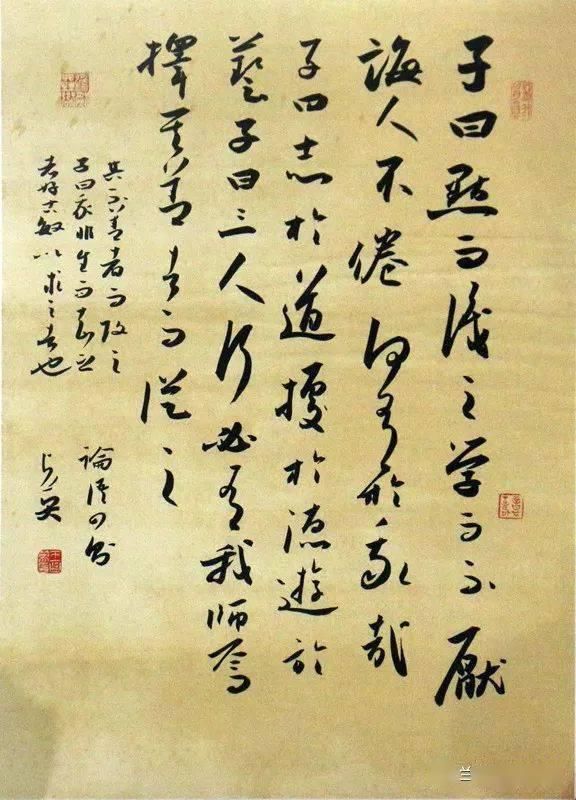 子曰默而識之學而不厭
誨人不倦何有於我哉
子曰志於道據於德遊於
藝子曰三人行必有我師焉
擇其善者而從之
其不善者而改之
子曰我非生而知之
者好古敏以求之者也
論語四則
兰